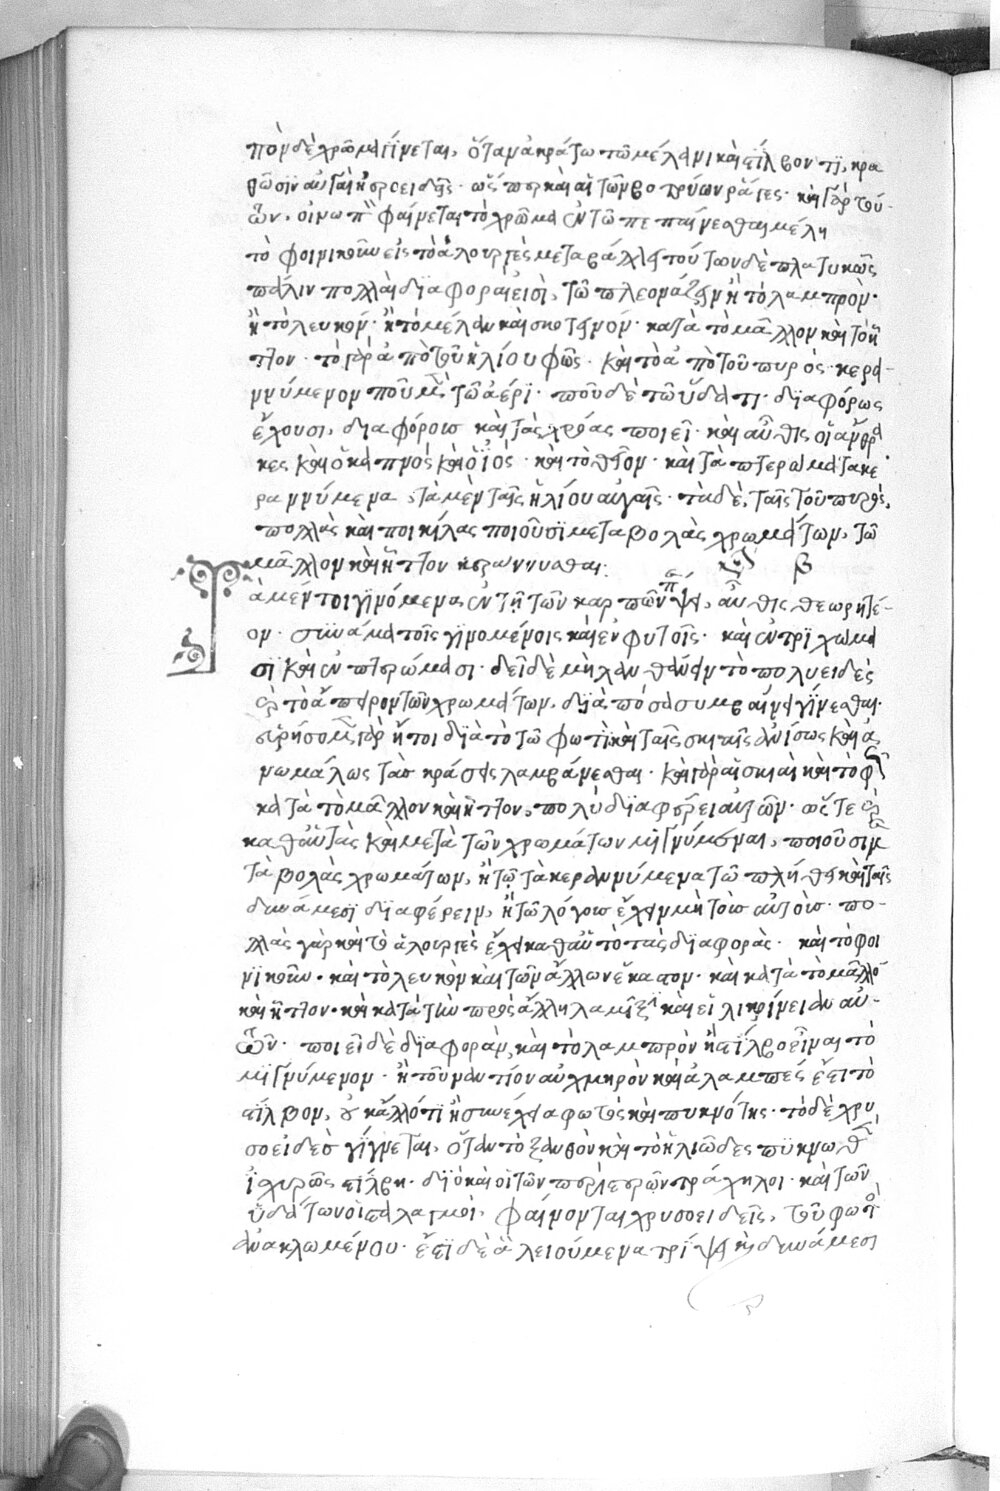 πὸν δὲ χρῶμα γίνεται, ὅταν ἀκράτω τῶ μέλανι καὶ στίλβοντι, κρα
θῶσιν αὐγαὶ ἠεροειδεῖς· ὥσπερ καὶ αἱ τῶν βοτρύων ῥᾶγες· καὶ γὰρ τού-
των, οἰνωπὸν φαίνεται τὸ χρῶμα ἐν τῶ πεπαίνεσθαι μέλη
τὸ φοινικοῦν εἰς τὸ ἁλουργὲς μεταβάλλει τούτων δὲ πλατυκῶς
πάλιν πολλαὶ διαφοραὶ εἰσὶ, τῶ πλεονάζειν ἢ τὸ λαμπρὸν·
ἢ τὸ λευκόν· ἢ τὸ μέλαν καὶ σκοτεινόν· κατὰ τὸ μᾶλλον καὶ τὸ ἧ
ττον· τὸ γὰρ ἀπὸ τοῦ ἡλίου φῶς· καὶ τὸ ἀπὸ τοῦ πυρός· κερα-
ννύμενον ποῦ μὲν τῶ ἀέρι· ποῦ δὲ τῶ ὕδατι· διαφόρως
ἔχουσι, διαφόροις καὶ τὰς χρόας ποιεῖ· καὶ αὖθις οἱ ἄνθρα
κες καὶ ὁ καπνός καὶ ὁ ἰός· καὶ τὸ θεῖον· καὶ τὰ πτερώματα κε
ραννύμενα, τὰ μὲν ταῖς ἡλίου αὐγαῖς· τὰ δὲ, ταῖς τοῦ πυρός,
πολλὰς καὶ ποικίλας ποιοῦσι μεταβολὰς χρωμάτων, τῶ
μᾶλλον καὶ ἧττον κεράννυσθαι: β
Τὰ μέντοι γινόμενα ἐν τῆ τῶν καρπῶν πέψει, αὖθις θεωρητέ-
ον· σὺν ἅμα τοῖς γινομένοις καὶ ἐν φυτοῖς· καὶ ἐν τριχώμα
σι καὶ ἐν πτερώμασι· δεῖ δὲ μὴ λανθάνειν τὸ πολυειδὲς
καὶ τὸ ἄπειρον τῶν χρωμάτων, διὰ πόσα συμβαίνει γίνεσθαι·
εὑρήσομεν γὰρ ἤτοι διὰ τὸ τῶ φωτὶ καὶ ταῖς σκιαῖς ἀνίσως καὶ ἀ
νωμάλως τὰς κράσεις λαμβάνεσθαι· καὶ γὰρ αἱ σκιαὶ καὶ τὸ φῶς
κατὰ τὸ μᾶλλον καὶ ἧττον, πολὺ διαφέρει αὐτῶν· ὥστε καὶ
καθ' αὑτὰς καὶ μετὰ τῶν χρωμάτων μιγνύμεναι, ποιοῦσι με
ταβολὰς χρωμάτων, ἢ τῶ τὰ κεραννύμενα τῶ πλήθει καὶ ταῖς
δυνάμεσι διαφέρειν, ἢ τῶ λόγοις ἔχειν μὴ τοῖς αὐτοῖς· πο-
λλὰς γὰρ καὶ τὸ ἁλουργὲς ἔχει καθ' αὑτὸ τὰς διαφορὰς· καὶ τὸ φοι
νικοῦν· καὶ τὸ λευκὸν καὶ τῶν ἄλλων ἕκαστον· καὶ κατὰ τὸ μᾶλλον
καὶ ἧττον· καὶ κατὰ τὴν πρὸς ἄλληλα μῖξιν καὶ εἰλικρίνειαν αὐ-
τῶν· ποιεῖ δὲ διαφορὰν, καὶ τὸ λαμπρὸν ἢ στίλβον εἶναι τὸ
μιγνύμενον· ἢ τοὐναντίον αὐχμηρὸν καὶ ἀλαμπές ἔστι τὸ
στίλβον, οὐκ ἄλλό τι ἢ συνέχεια φωτὸς καὶ πυκνότης· τὸ δὲ χρυ
σοειδὲς γίγνεται, ὅταν τὸ ξανθὸν καὶ τὸ ἡλιῶδες πυκνωθὲν
ἰσχυρῶς στίλβη· διὸ καὶ οἱ τῶν περιστερῶν τράχηλοι· καὶ τῶν
ὑδάτων οἱ σταλαγμοὶ, φαίνονται χρυσοειδεῖς, τοῦ φωτὸς
ἀνακλωμένου· ἔστι δὲ ἃ λειούμενα τρίψει καὶ δυνάμεσι